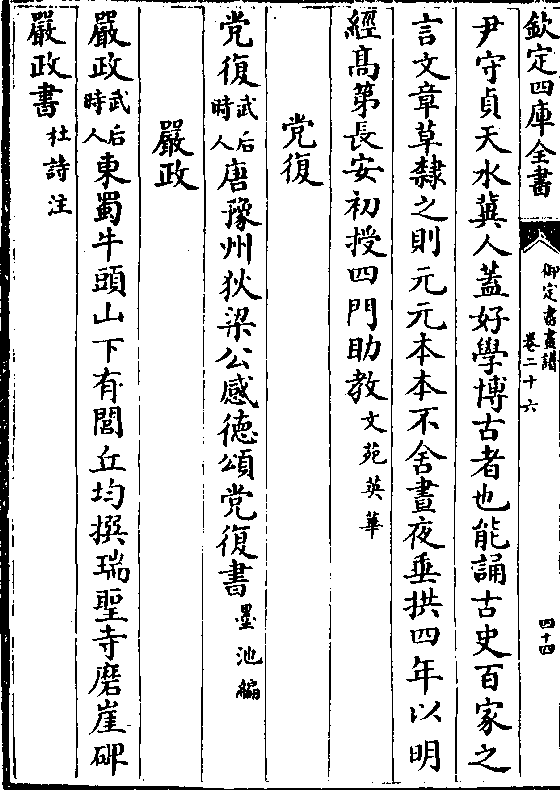 欽定四庫全書
御定書畫譜
卷二十六
四十四
尹守貞天水冀人蓋好學博古者也能誦古史百家之
言文章草隸之則元元本本不舍晝夜垂拱四年以明
經髙第長安初授四門助教文苑英華
党復
党復武后時人唐豫州狄梁公感德頌党復書墨池編
嚴政
嚴政武后時人東蜀牛頭山下有閭丘均撰瑞聖寺磨崖碑
嚴政書杜詩注